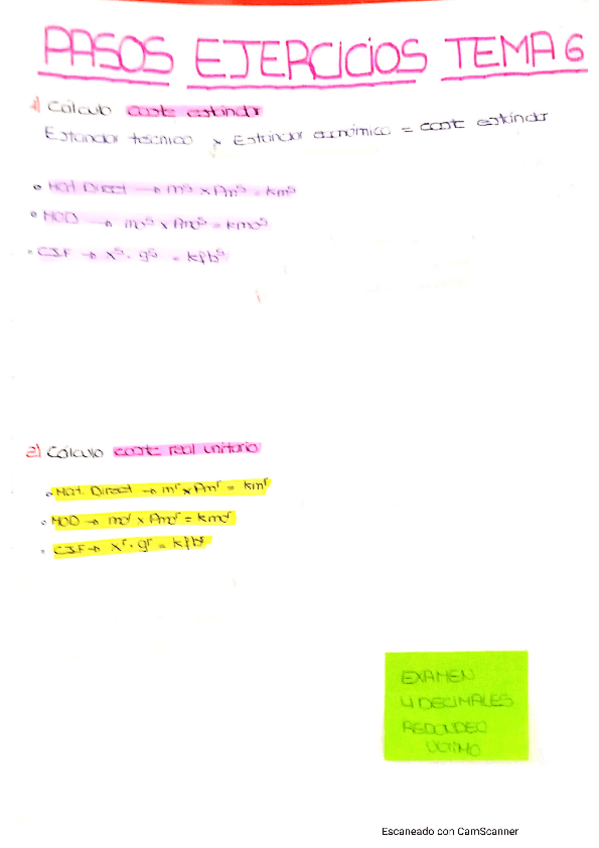 PASOS EJERCICIOS TEMA 6
1) Cálculo coste estándar
Estándar técnico x Estándar económico = coste estándar
• Mat. Direct → mˢ x Pmˢ = kmˢ
• MOD → moˢ x Pmoˢ = kmoˢ
• C.I.F → xˢ · gˢ = kfbˢ
2) Cálculo coste real unitario
• Mat. Direct → mʳ x Pmʳ = kmʳ
• MOD → moʳ x Pmoʳ = kmoʳ
• C.I.F → xʳ · gʳ = kfbʳ
EXAMEN
4 DECIMALES
REDONDEO
ÚLTIMO
Escaneado con CamScanner